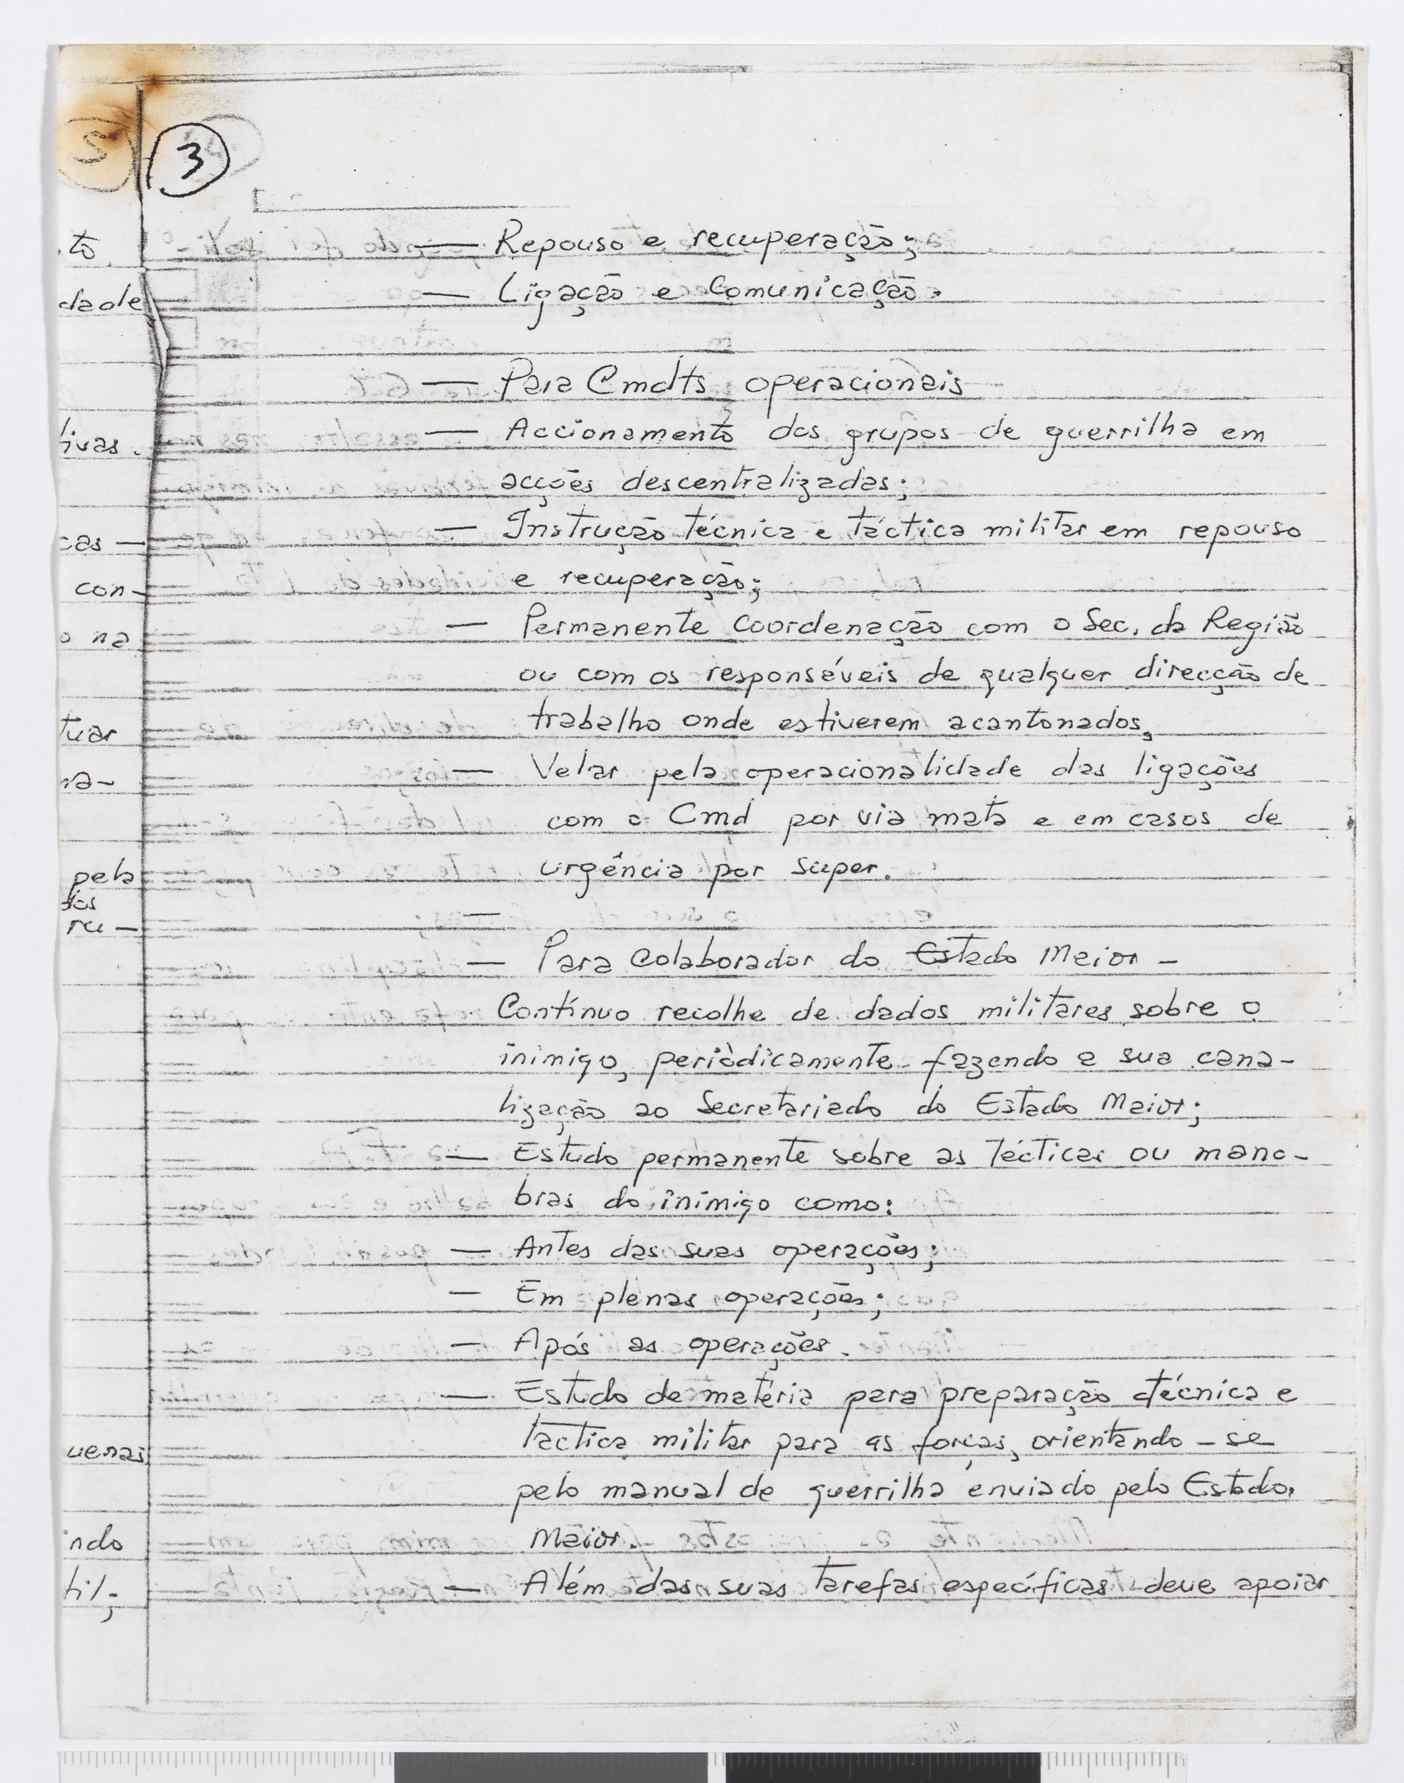 3
— Repouso e recuperação;
— Ligação e Comunicação.
— Para Cmdts operacionais
— Accionamento dos grupos de guerrilha em
acções descentralizadas;
— Instrução técnica e táctica militar em repouso
e recuperação;
— Permanente coordenação com o Sec. da Região
ou com os responsáveis de qualquer direcção de
trabalho onde estiverem acantonados,
— Velar pela operacionalidade das ligações
com o Cmd por via mata e em casos de
urgência por super.
—
— Para Colaborador do Estado Maior —
Contínuo recolhe de dados militares sobre o
inimigo, periòdicamente fazendo a sua cana-
lização ao Secretariado do Estado Maior;
— Estudo permanente sobre as tácticas ou mano-
bras do inimigo como:
— Antes das suas operações;
— Em plenas operações;
— Após as operações.
— Estudo de matéria para preparação técnica e
táctica militar para as forças, orientando-se
pelo manual de guerrilha enviado pelo Estado.
Maior.
— Além das suas tarefas específicas deve apoiar
to
dade
tivas.
cas —
con-
o na
tuar
na-
pela
ru —
uenas
ndo
til;